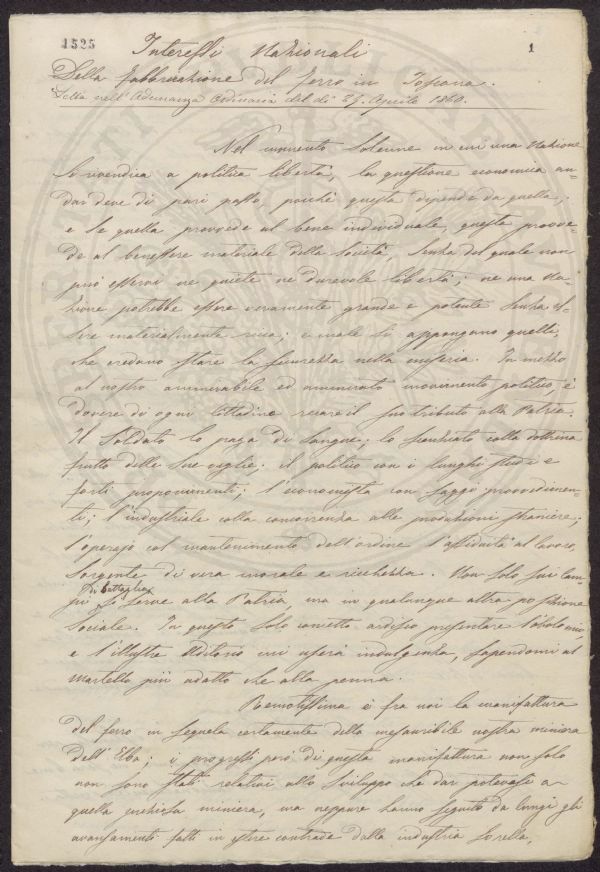 1525
1
Interessi Nazionali
Della fabbricazione del ferro in Toscana.
Letta nell'Adunanza Ordinaria del dì 29. Aprile 1860.
Nel momento solenne in cui una Nazione
si rivendica a politica libertà, la questione economica an-
dar deve di pari passo, poiché questa dipende da quella;
e se quella provvede al bene individuale, questa provve-
de al benessere materiale della società senza del quale non
può esservi ne quiete ne durevole libertà; ne una Na-
zione potrebbe essere veramente grande e potente senza es-
sere materialmente ricca; e male si appongano quelli,
che credano stare la sicurezza nella miseria. In mezzo
al nostro ammirabile ed ammirato movimento politico, è
dovere di ogni Cittadino recare il suo tributo alla Patria.
Il Soldato lo paga di sangue; lo scienziato colla dottrina
frutto delle sue veglie; il politico con i lunghi studi e
forti proponimenti; l'economista con saggi provvedimen-
ti; l'industriale colla concorrenza alle produzioni straniere;
l'operajo col mantenimento dell'ordine l'assiduità al lavoro,
sorgente di vera morale e ricchezza. Non solo sui cam-
di battaglia
pi si serve alla Patria, ma in qualunque altra posizione
sociale. In questo solo concetto ardisco presentare l'obolo mio
e l'illustre Uditorio mi userà indulgenza, sapendomi al
martello più adatto che alla penna.
Remotissima è fra noi la manifattura
del ferro in seguela certamente della inesauribile nostra miniera
dell'Elba; i progressi però di questa manifattura non solo
non sono stati relativi allo sviluppo che dar potevasi a
quella preziosa miniera, ma neppure hanno seguito da lungi gli
avanzamenti fatti in estere contrade dalla industria sorella,